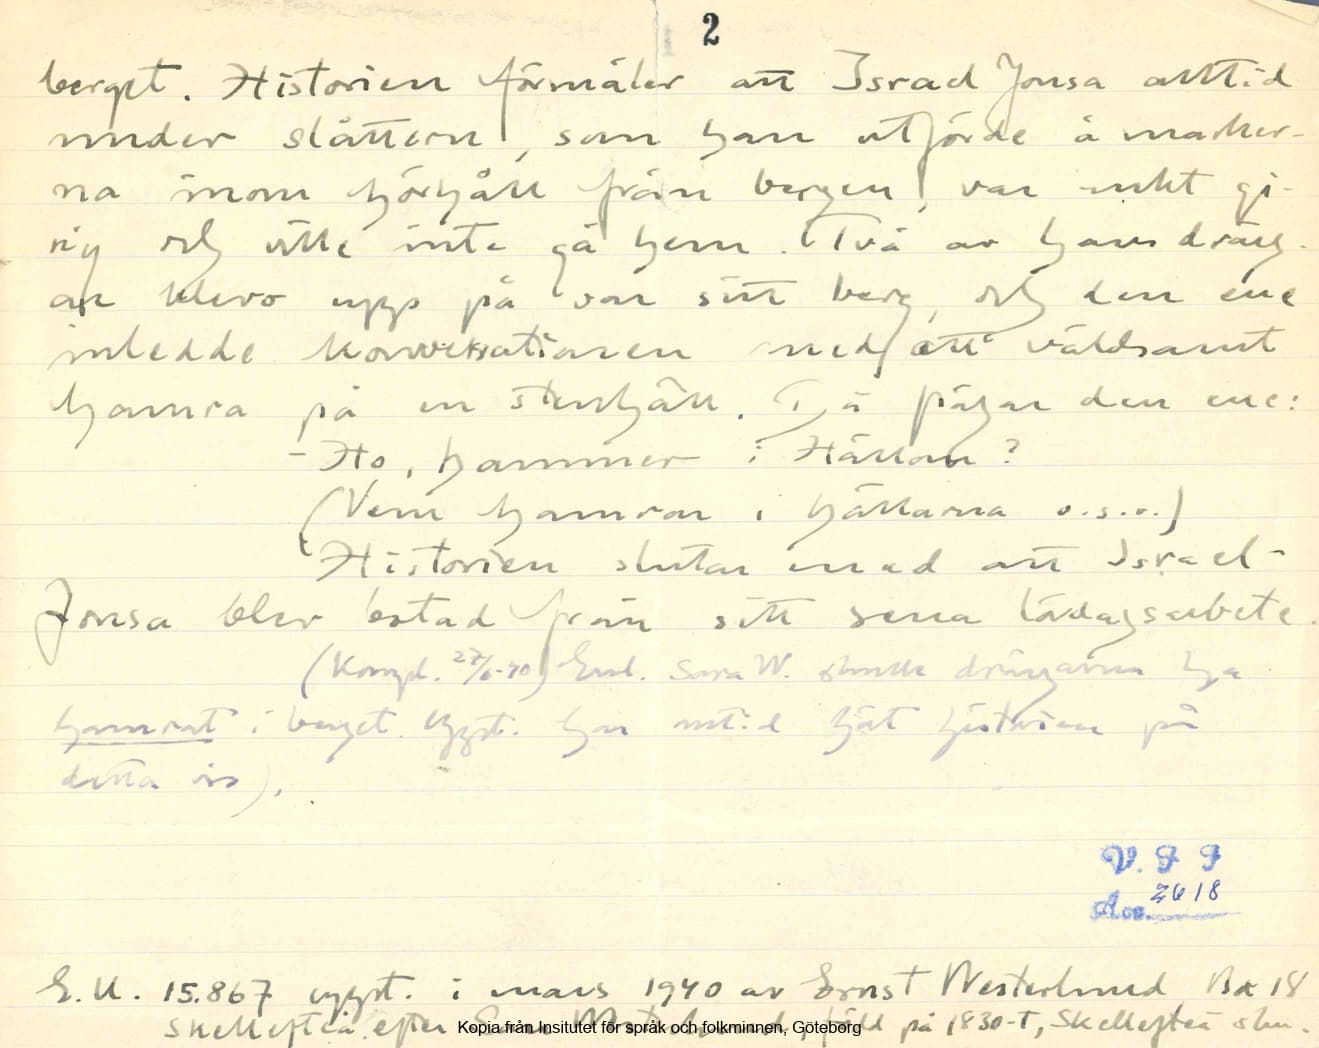 2
berget. Historien förmäler att Israel Jonsa alltid
under slåttern, som han utförde å marker-
na inom hörhåll från bergen, var mkt gi-
rig och ville inte gå hem. Två av hans dräng-
ar klevo upp på var sitt berg, och den ene
inledde konversationen med att våldsamt
hamra på en stenhäll. Då frågar den ene:
– Ho, hammer i Hällom?
(Vem hamrar i hällarna o.s.v.)
Historien slutar med att Israel-
Jonsa blev botad från sitt sena lördagsarbete.
(Kompl. 27/6-40) Enl. Sara W. skulle drängarna ha
hamrat i berget. Uppt. har alltid hört historien på
detta vis).
V. F F
Acc. 2618
E. U. 15.867 uppt. i mars 1940 av Ernst Westerlund Box 18
Skellefteå, efter född på 1830-T, Skellefteå skn.
Kopia från Insitutet för språk och folkminnen, Göteborg